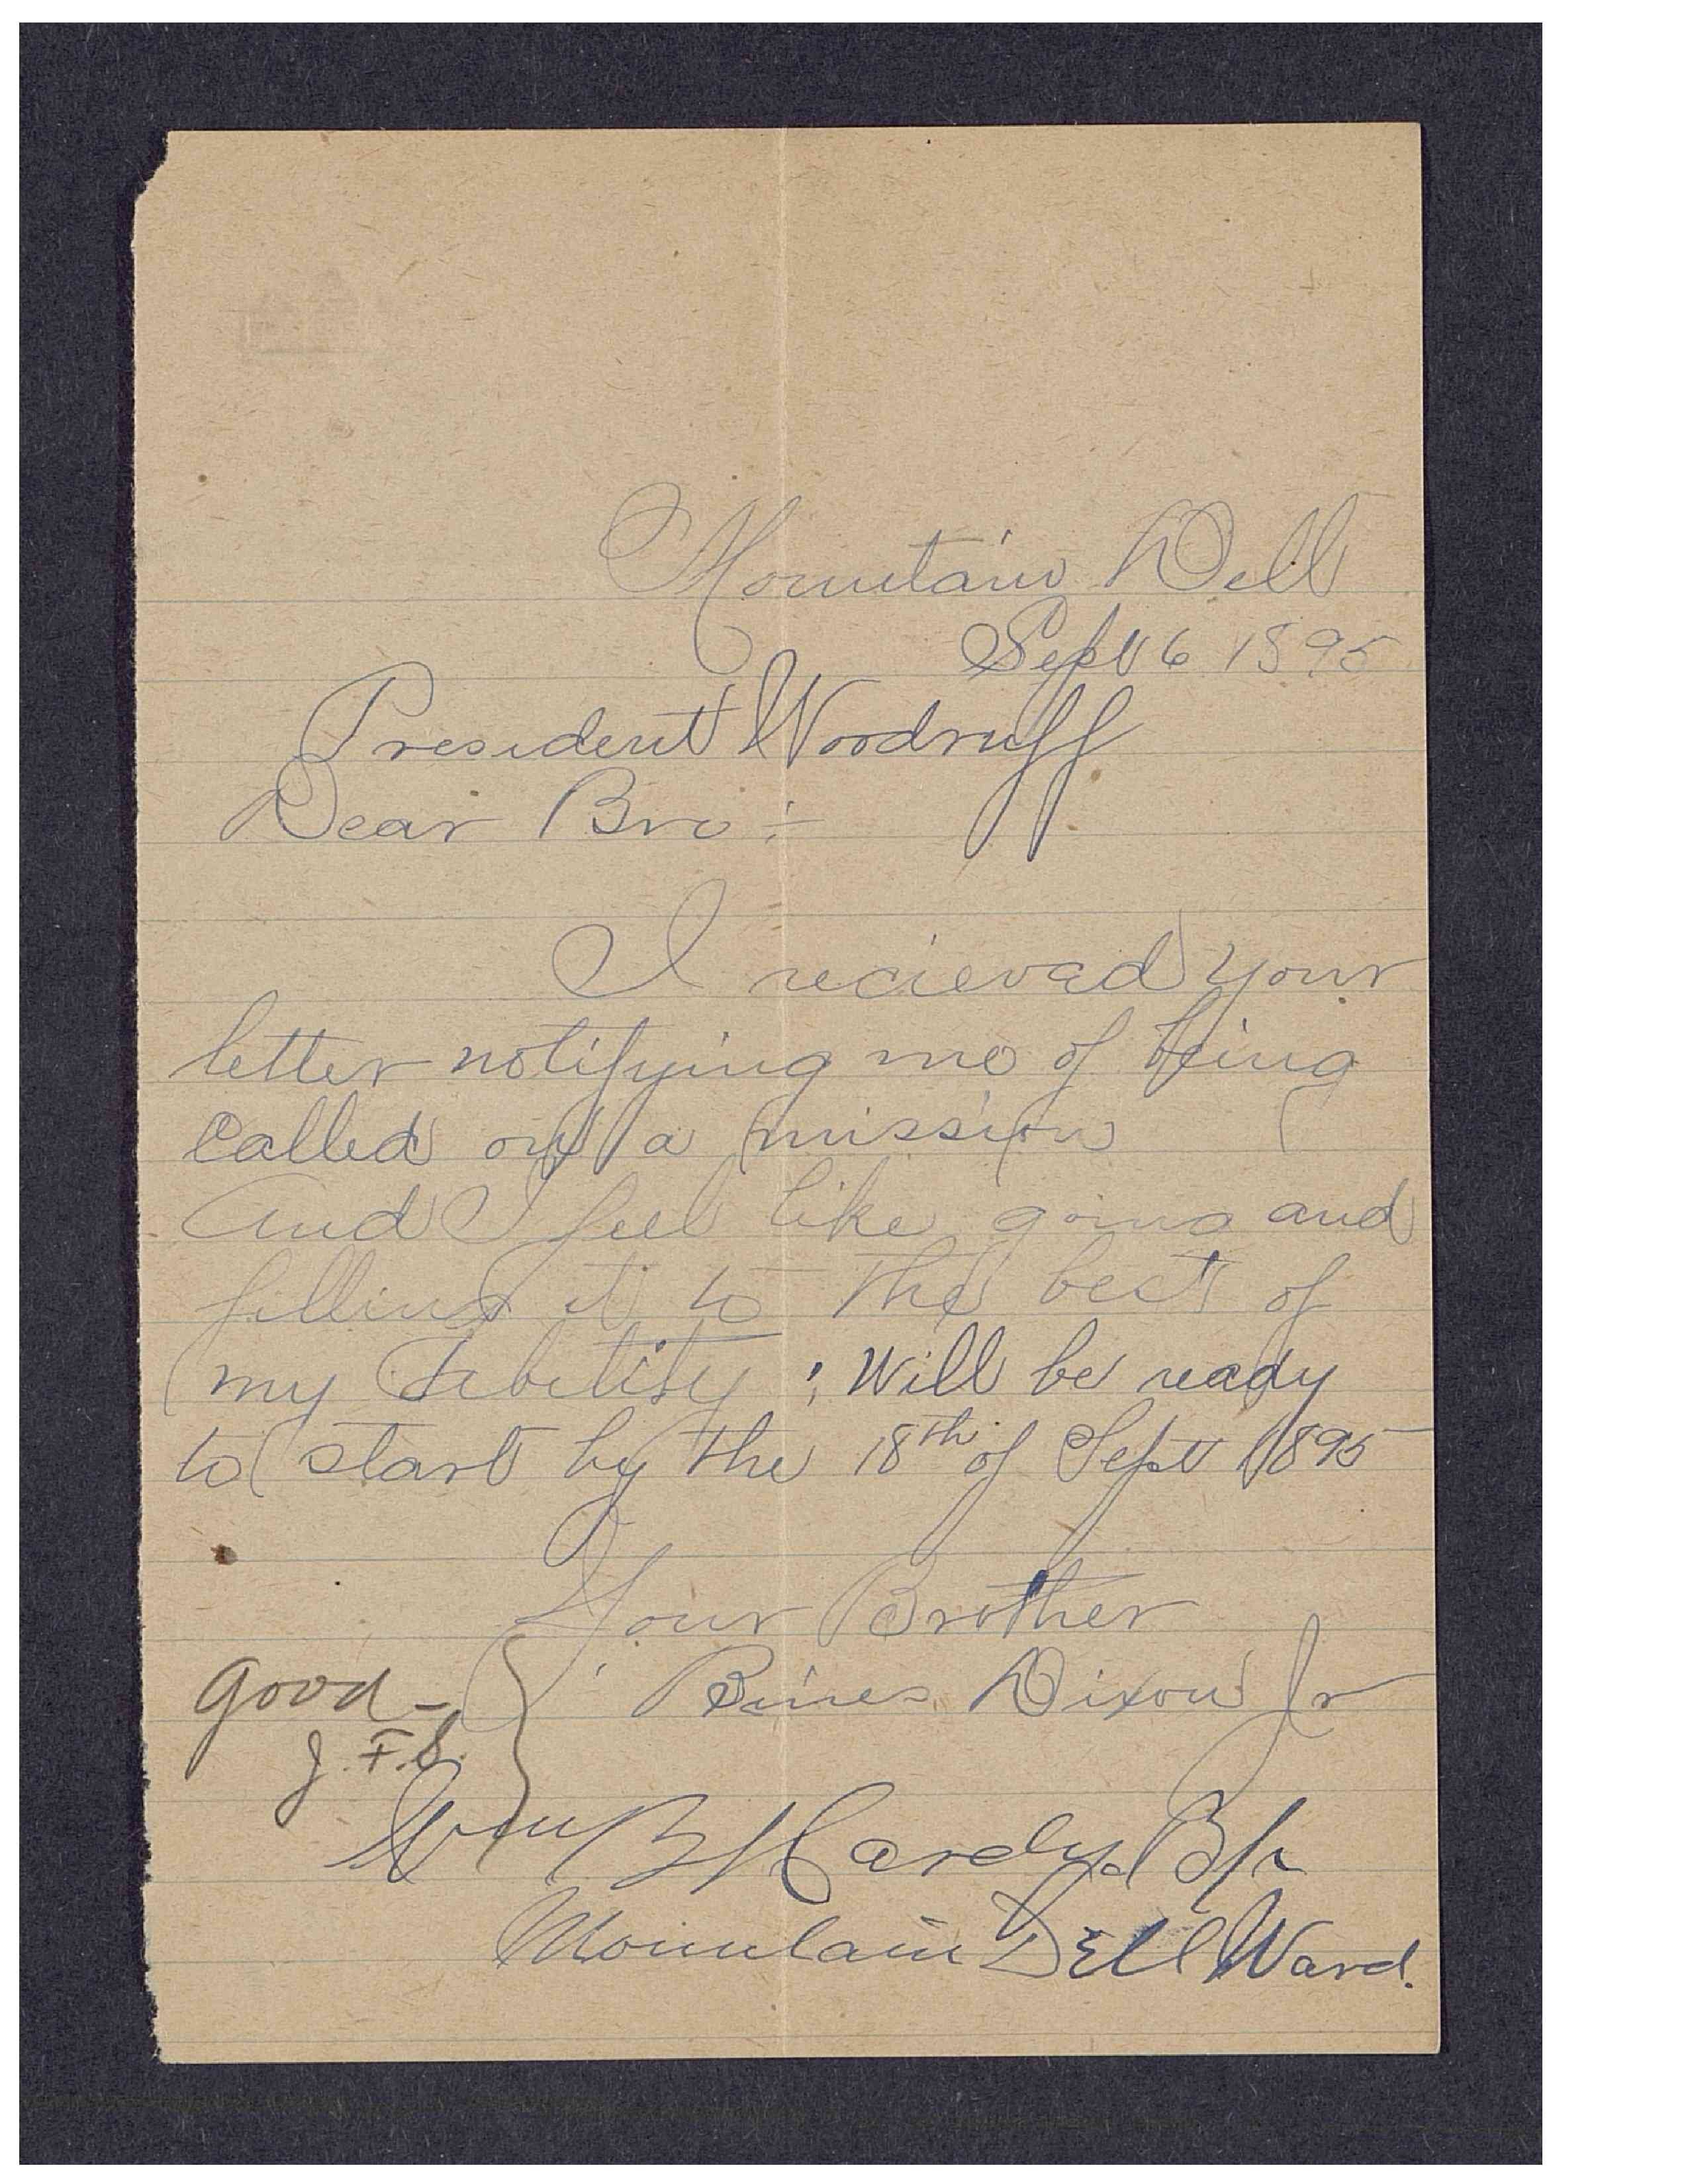 Mountain Dell
Sept 6 1895
President Woodruff
Dear Bro :-
I recieved your
letter notifying me of being
called on a mission
And I feel like going and
filling it to the best of
my Ability ; Will be ready
to start by the 18th of Sept 1895
Your Brother
Dixon Jr
Good -
J. F. S.
Wm B Hardy Bp
Mountain Dell Ward.